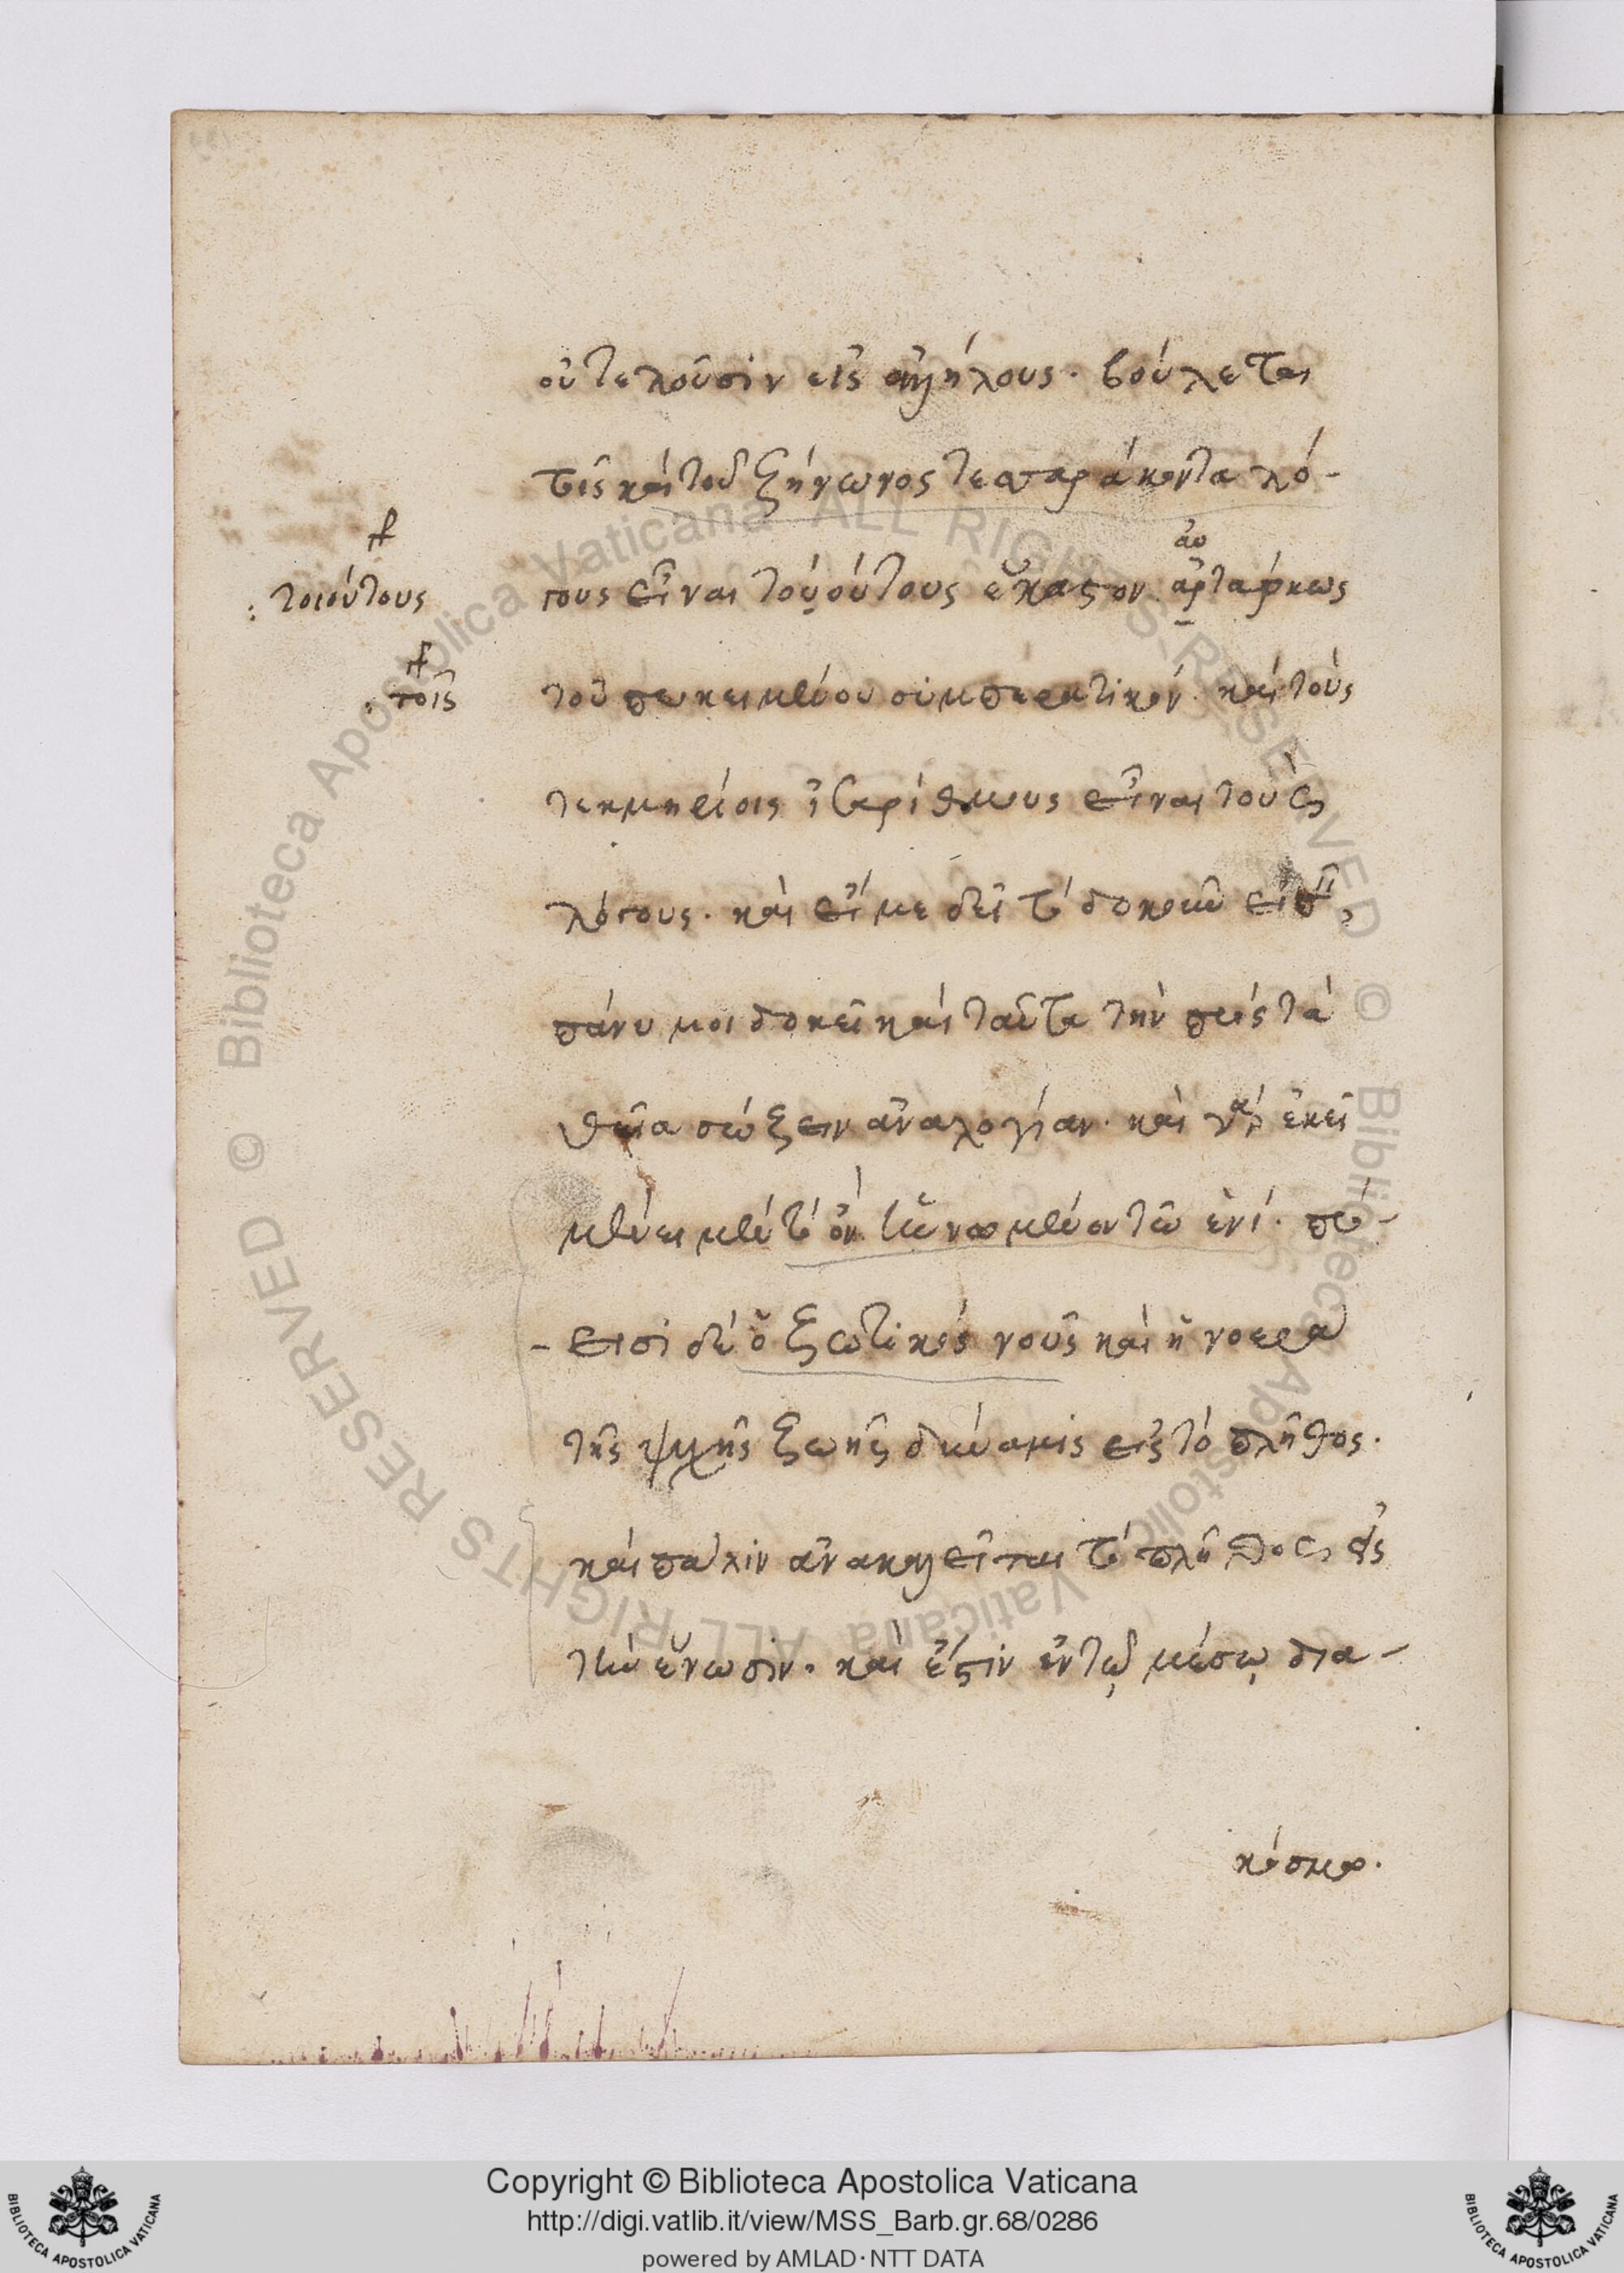 οὐ τελοῦσιν εἰς ἀλλήλους. βούλεται
τις καὶ τοῦ ζήνωνος τεσσαράκοντα λό-
γους εἶναι τοὺς οὕτους ἕκαστον. ἀρταρκως
αυ
: τοιούτους
του προκειμένου συμπερατικόν. καὶ τοὺς
: τοῖς
τεκμηρίοις ἰσαρίθμους εἶναι τοὺς
λόγους. καὶ εἴ με δεῖ τὸ δοκοῦν εἰπεῖν,
πάνυ μοι δοκεῖ καὶ ταῦτα τὴν πρὸς τὰ
θεῖα σώζειν ἀναλογίαν. καὶ γὰρ ἐκεῖ
μένει μὲν τὸ ὂν ἡνωμένον τῶ ἑνί. πρό-
- εισι δὲ ὁ ζωτικὸς νοῦς καὶ ἡ νοερὰ
τῆς ψυχῆς ζωῆς δύναμις εἰς τὸ πλῆθος.
καὶ πάλιν ἀνακαλεῖται τὸ πλῆθος εἰς
τὴν ἕνωσιν. καὶ ἔστιν ἐν τῷ μέσῳ δια-
κόσμῳ.
Biblioteca Apostolica Vaticana ALL RIGHTS RESERVED ©
Biblioteca Apostolica Vaticana ALL RIGHTS RESERVED ©
Copyright © Biblioteca Apostolica Vaticana
http://digi.vatlib.it/view/MSS_Barb.gr.68/0286
powered by AMLAD·NTT DATA
BIBLIOTECA APOSTOLICA VATICANA
BIBLIOTECA APOSTOLICA VATICANA